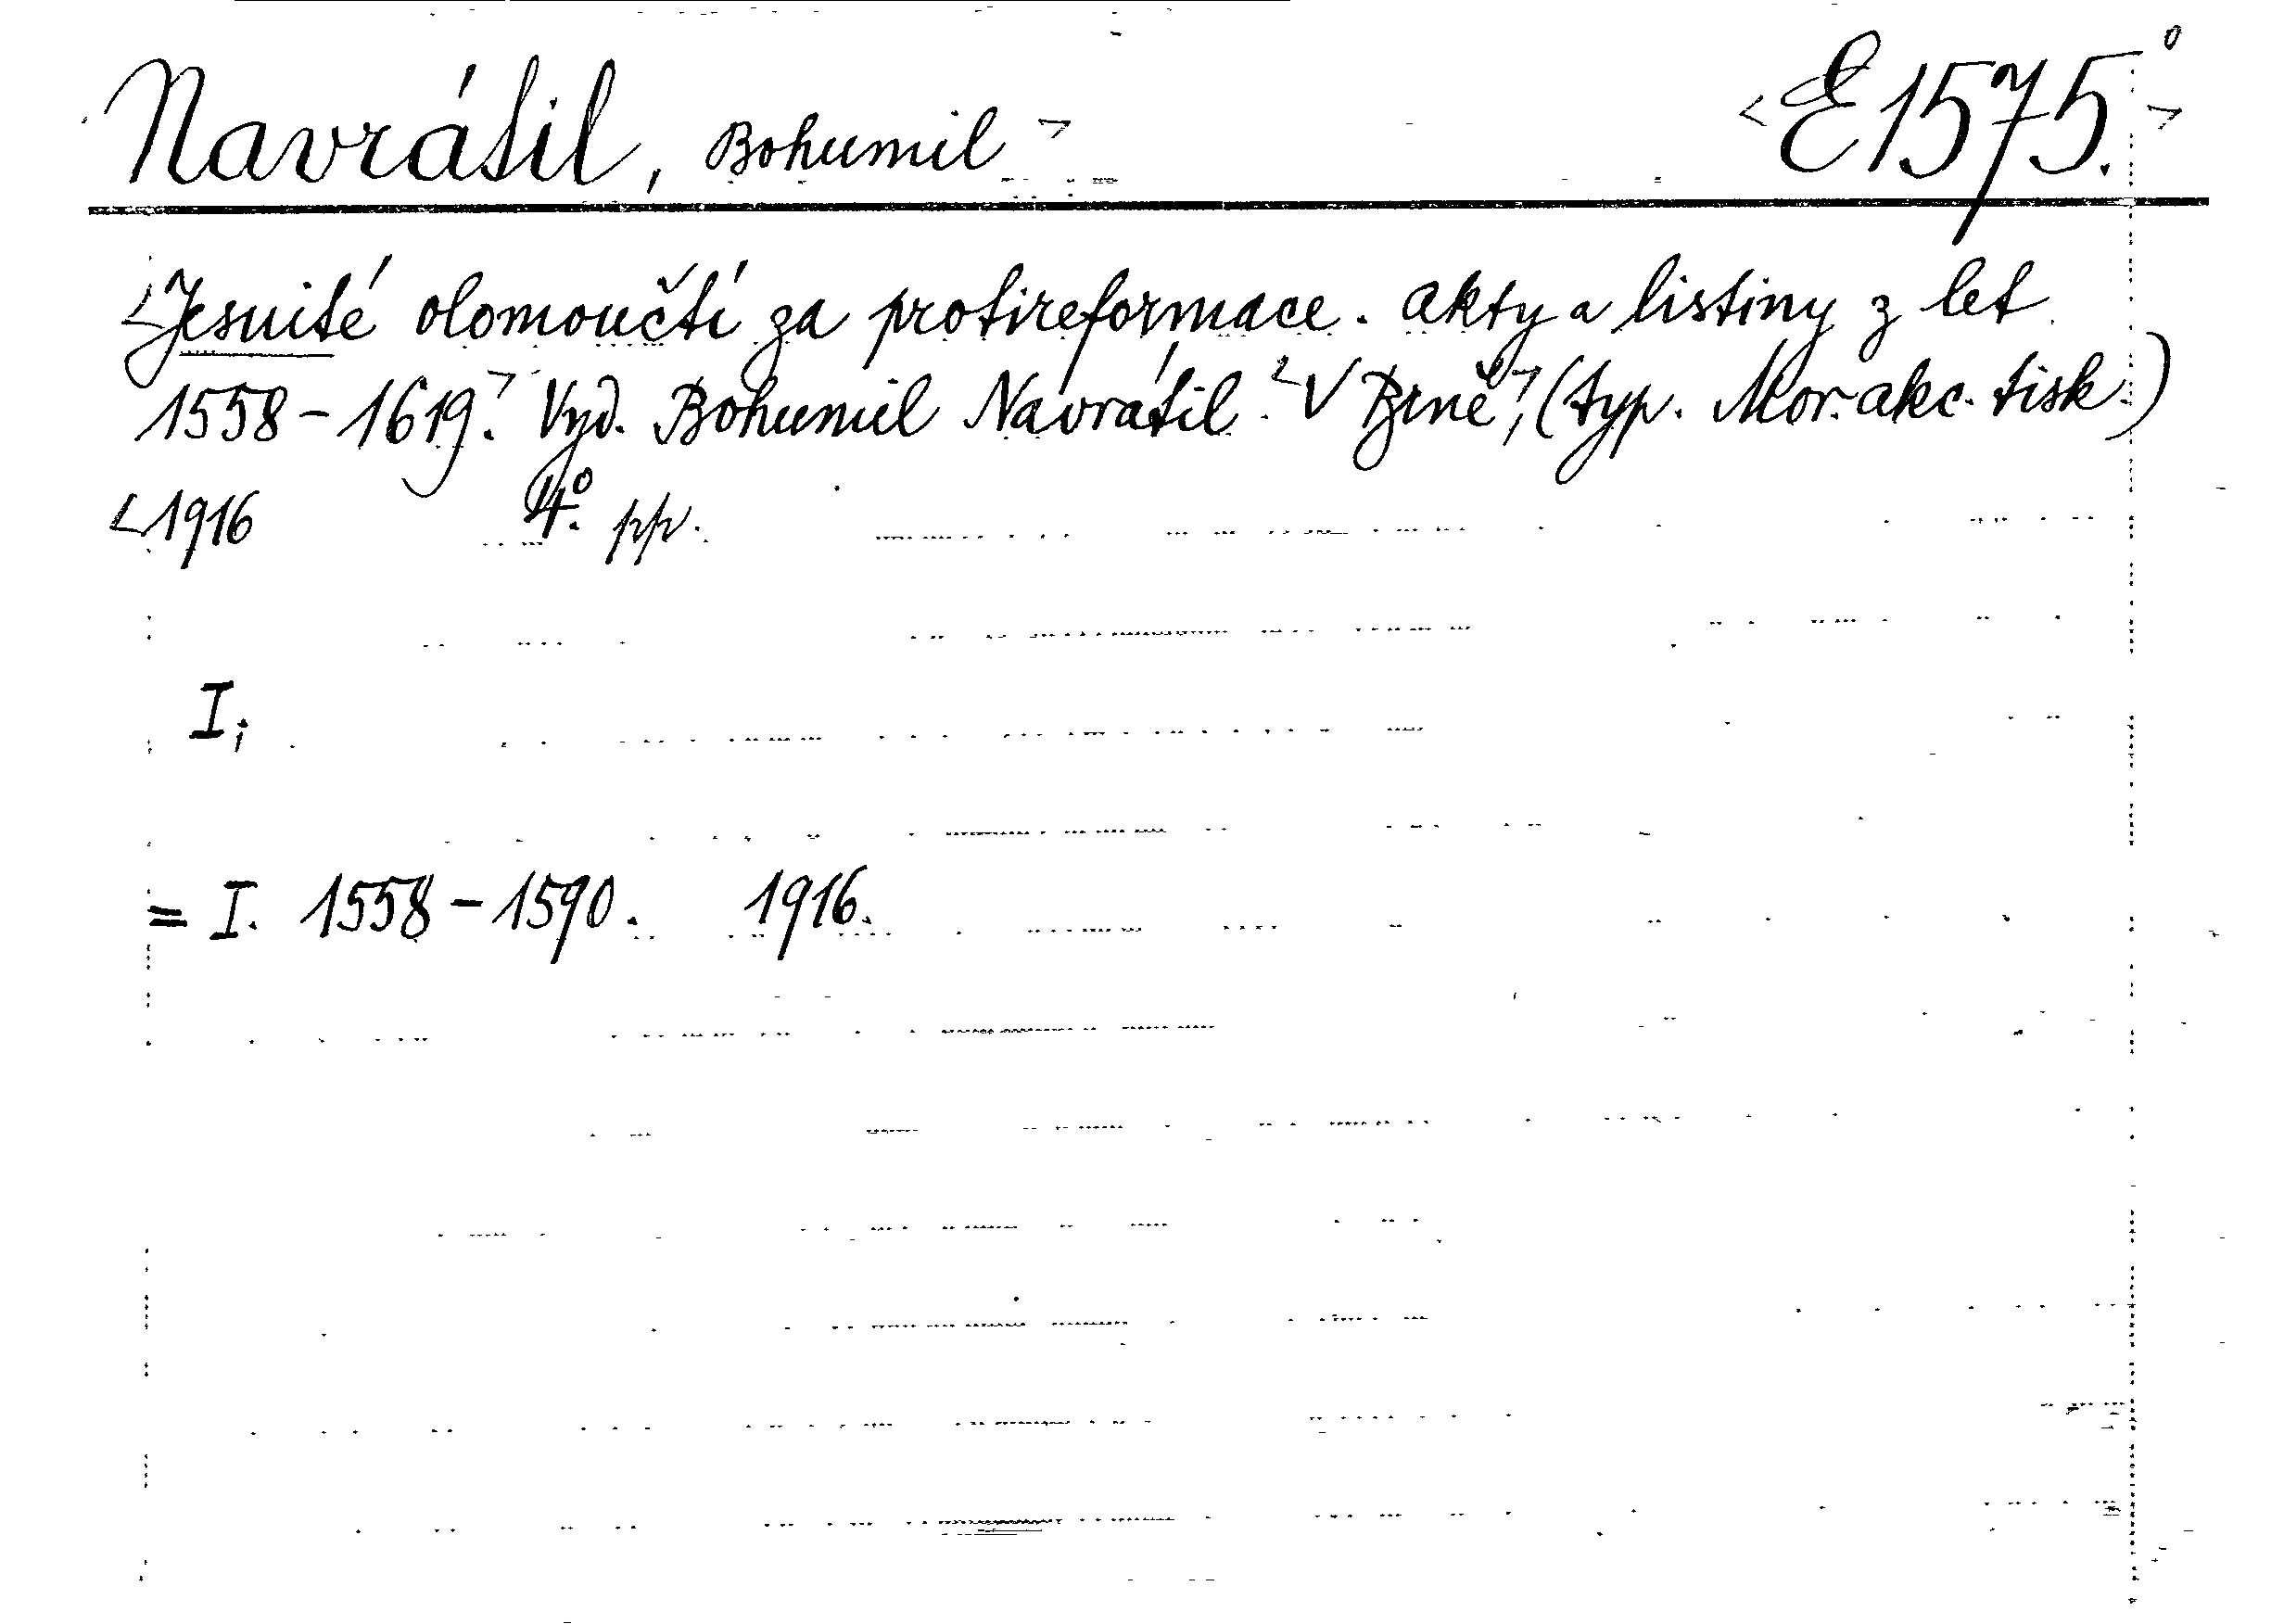 Navrátil, Bohumil > <E1575.⁰>
<Jesuité olomoučtí za protireformace. Akty a listiny z let
1558-1619.> Vyd. Bohumil Navrátil. <V Brně,> (typ. Mor. akc. tisk.)
<1916 4.⁰ pp.
I,
= I. 1558-1590. 1916.